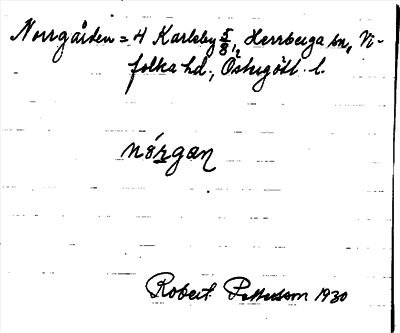 Norrgården = 4 Karleby 5/8, Herrberga sn, Vi-
folka hd., Östergötl. l.
nórgan
Robert Pettersson 1930